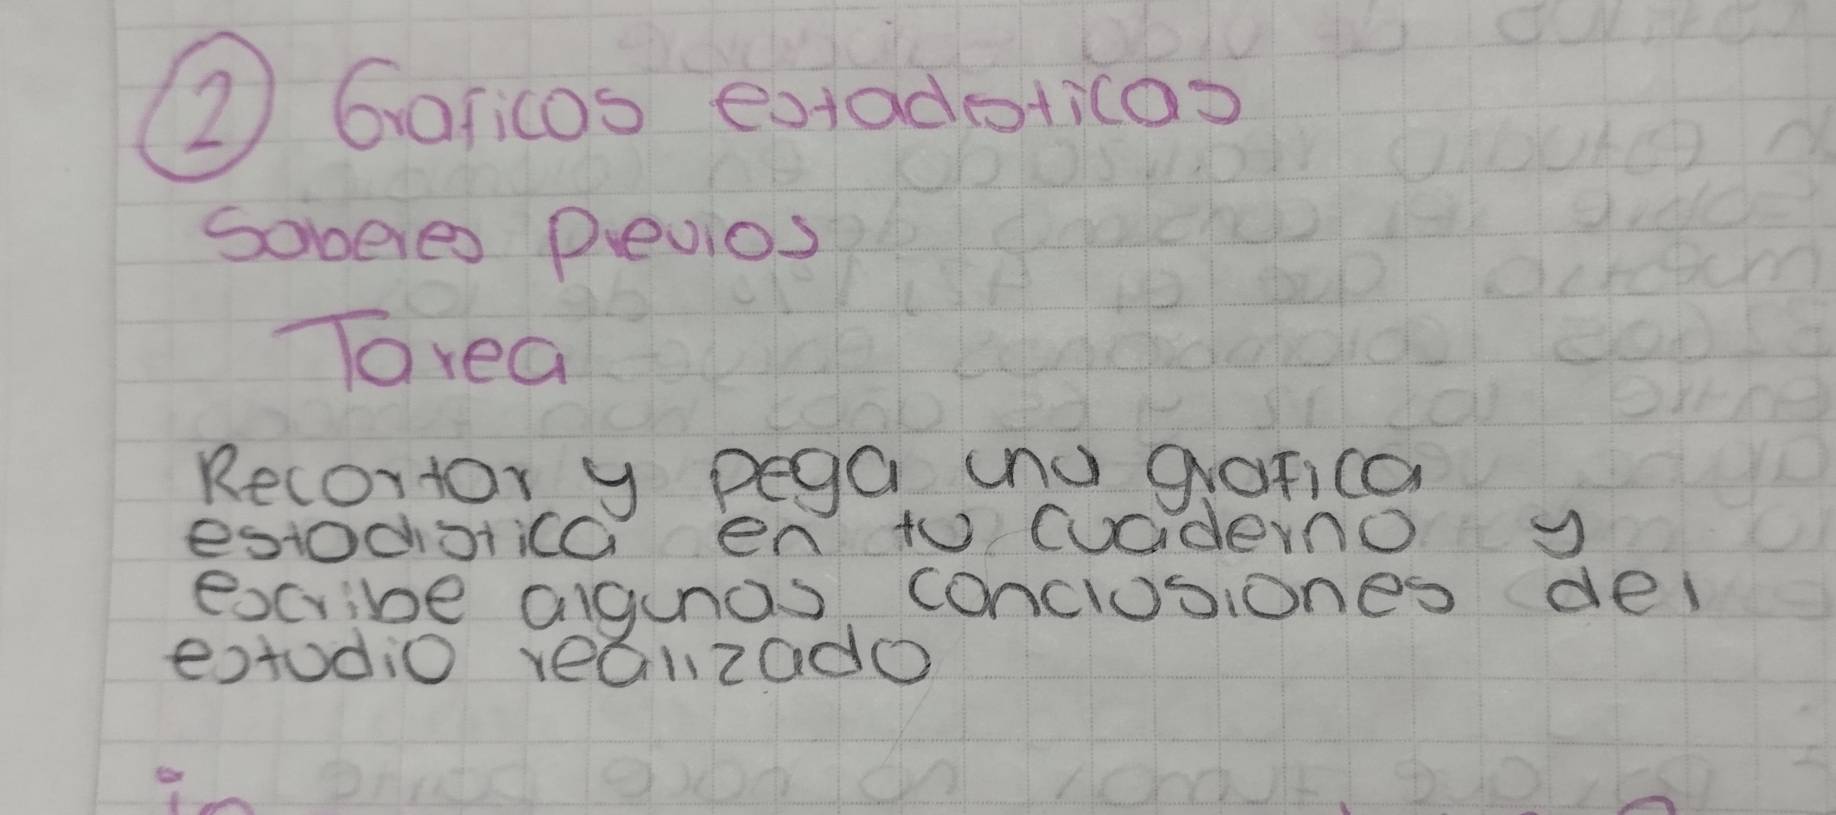 2 Graficos estadisticas
Saberes Previos
Tarea
Recortar y pega una grafica
estadistica en tu cuaderno y
escribe algunas conclusiones del
estudio realizado